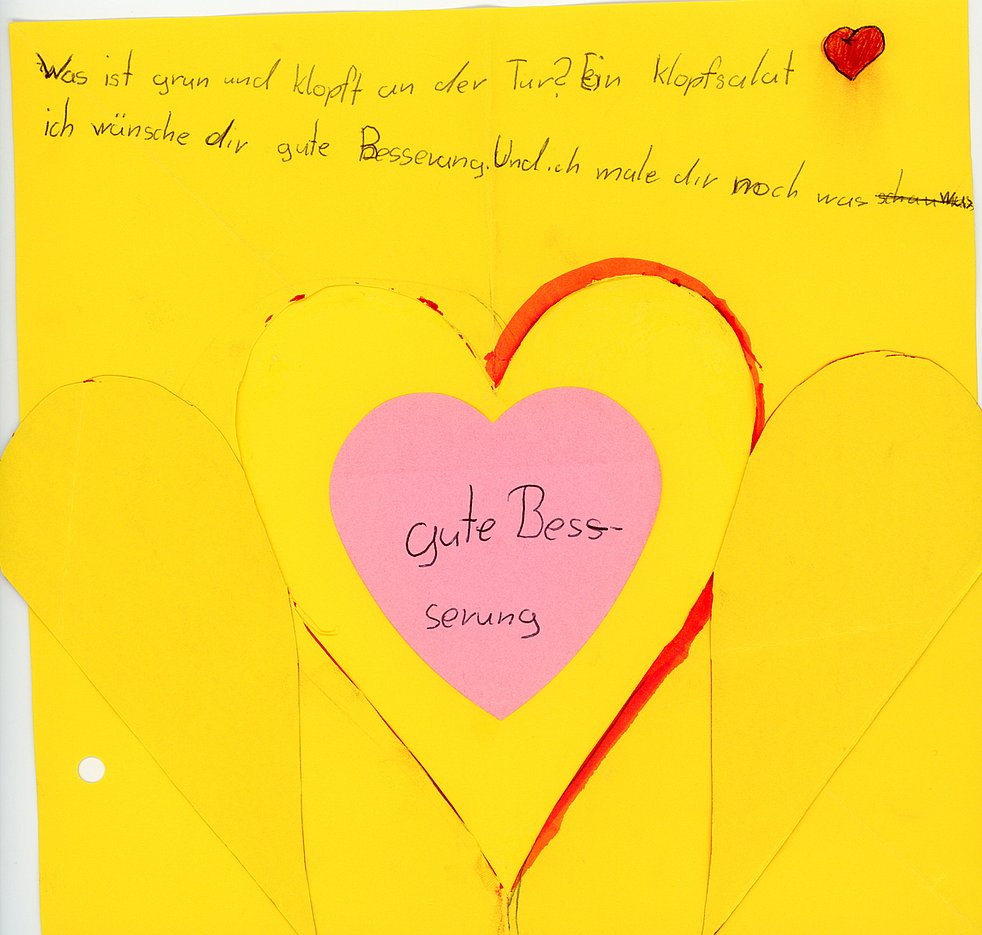 Was ist grun und klopft an der Tur? Ein klopfsalat
ich wünsche dir gute Besserung. Und ich male dir noch was schau was
gute Bess-
serung